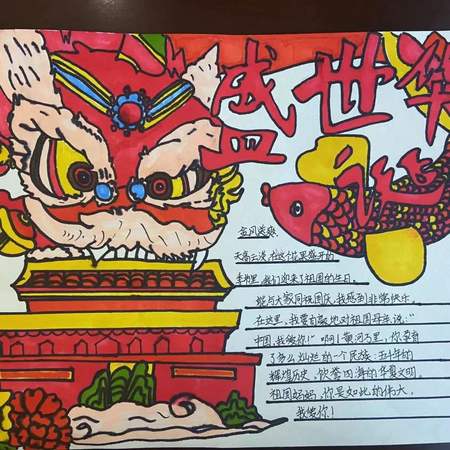 盛世华诞
金风送爽,
天高云淡,在这个百果盛开的
季节里,我们迎来了祖国的生日。
能与大家同祝国庆,我感到非常快乐。
在这里,我要自豪地对祖国母亲说:“
中国,我爱你!”啊!黄河万里,你孕育
了多么灿烂的一个民族;五千年的
辉煌历史,饮誉四海的华夏文明。
祖国妈妈,你是如此的伟大,
我爱你!